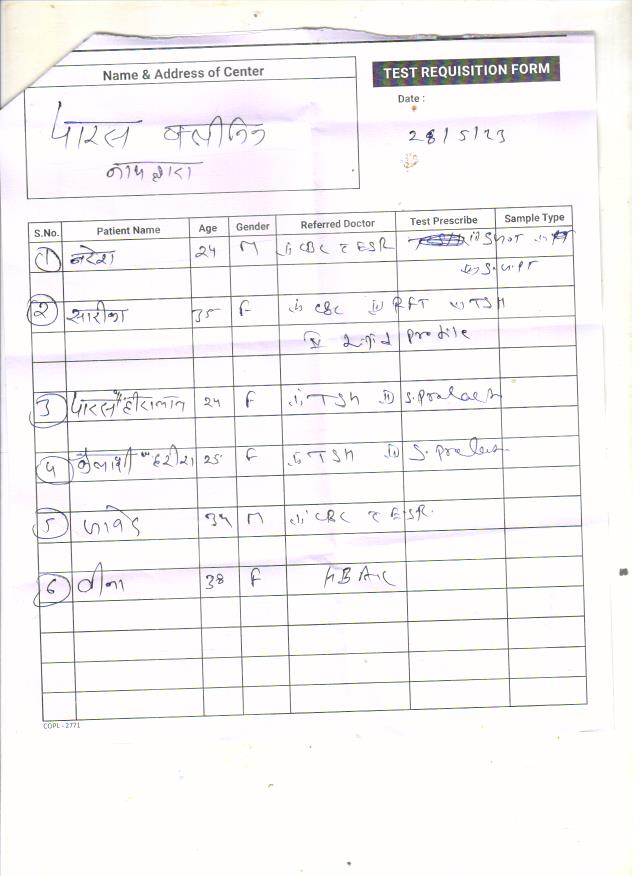 Name & Address of Center
TEST REQUISITION FORM
Date :
पारस क्लीनिक
28/5/23
नाथद्वारा
S.No. Patient Name Age Gender Referred Doctor Test Prescribe Sample Type
1 नरेश 24 M i) CBC ē ESR ii) SGOT
iv) SGPT
2 सारीका 35 F i) CBC ii) RFT iii) TSH
Lipid profile
3 पारस हीरालाल 24 F i) TSH ii) S. prolact
4 25 F i) TSH ii) S. prolact
5 जावेद 34 M i) CBC ē ESR.
6 वीना 38 F HBA1C
COPL -2771